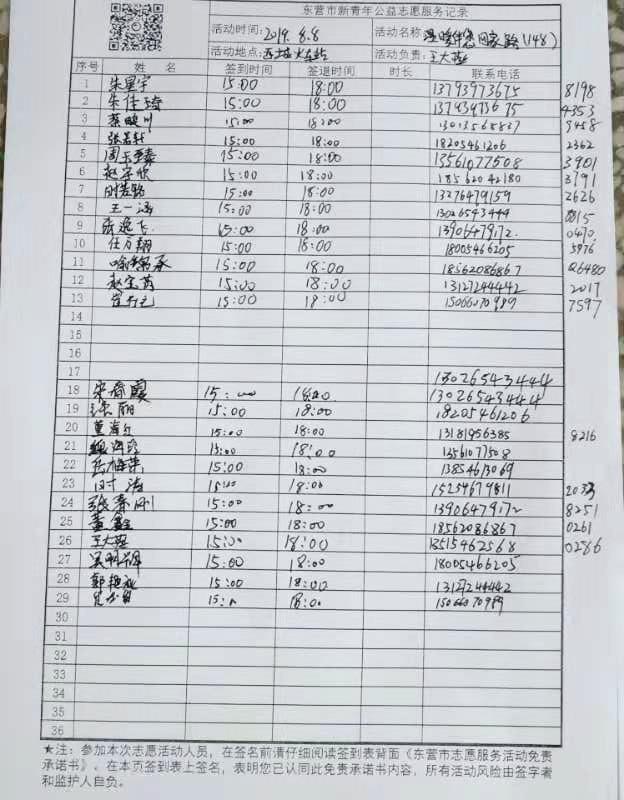 东营市新青年公益志愿服务记录
活动时间: 2019.8.8 活动名称: 温暖伴您回家路(148)
活动地点: 火车站 活动负责: 王大燕
序号 姓名 签到时间 签退时间 时长 联系电话
1 朱星宇 15:00 18:00 13793973675 8198
2 朱佳琦 15:00 18:00 13793973675 4353
3 蔡映川 15:00 18:00 13013568827 9458
4 张若轩 15:00 18:00 18205461206 2362
5 周玉臻 15:00 18:00 13561077508 3901
6 赵宇欣 15:00 18:00 18562042180 3791
7 15:00 18:00 13276479159 2626
8 王一涵 15:00 18:00 13026543444 815
9 逸飞 15:00 18:00 13906479172 0470
10 任万翔 15:00 18:00 18005466205 5976
11 喻锦承 15:00 18:00 18562086867 26480
12 赵宝茵 15:00 18:00 13127244442 2017
13 15:00 18:00 15066070989 7597
14
15
16
17 13026543444
18 宋春霞 15:00 18:00 13026543444
19 张丽 15:00 18:00 18205461206
20 董海 15:00 18:00 13181956385 8216
21 15:00 18:00 13561077508
22 岳梅荣 15:00 18:00 13854613069
23 时涛 15:00 18:00 15254679811
24 张春刚 15:00 18:00 13906479172 8251
25 董鑫 15:00 18:00 18562086867 0261
26 王大燕 15:00 18:00 18515462568 0286
27 吴明辉 15:00 18:00 18005466205
28 郭艳 15:00 18:00 13127244442
29 18:00 15066070989
30
31
32
33
34
35
36
★注：参加本次志愿活动人员，在签名前请仔细阅读签到表背面《东营市志愿服务活动免责
承诺书》。在本页签到表上签名，表明您已认同此免责承诺书内容，所有活动风险由签字者
和监护人自负。